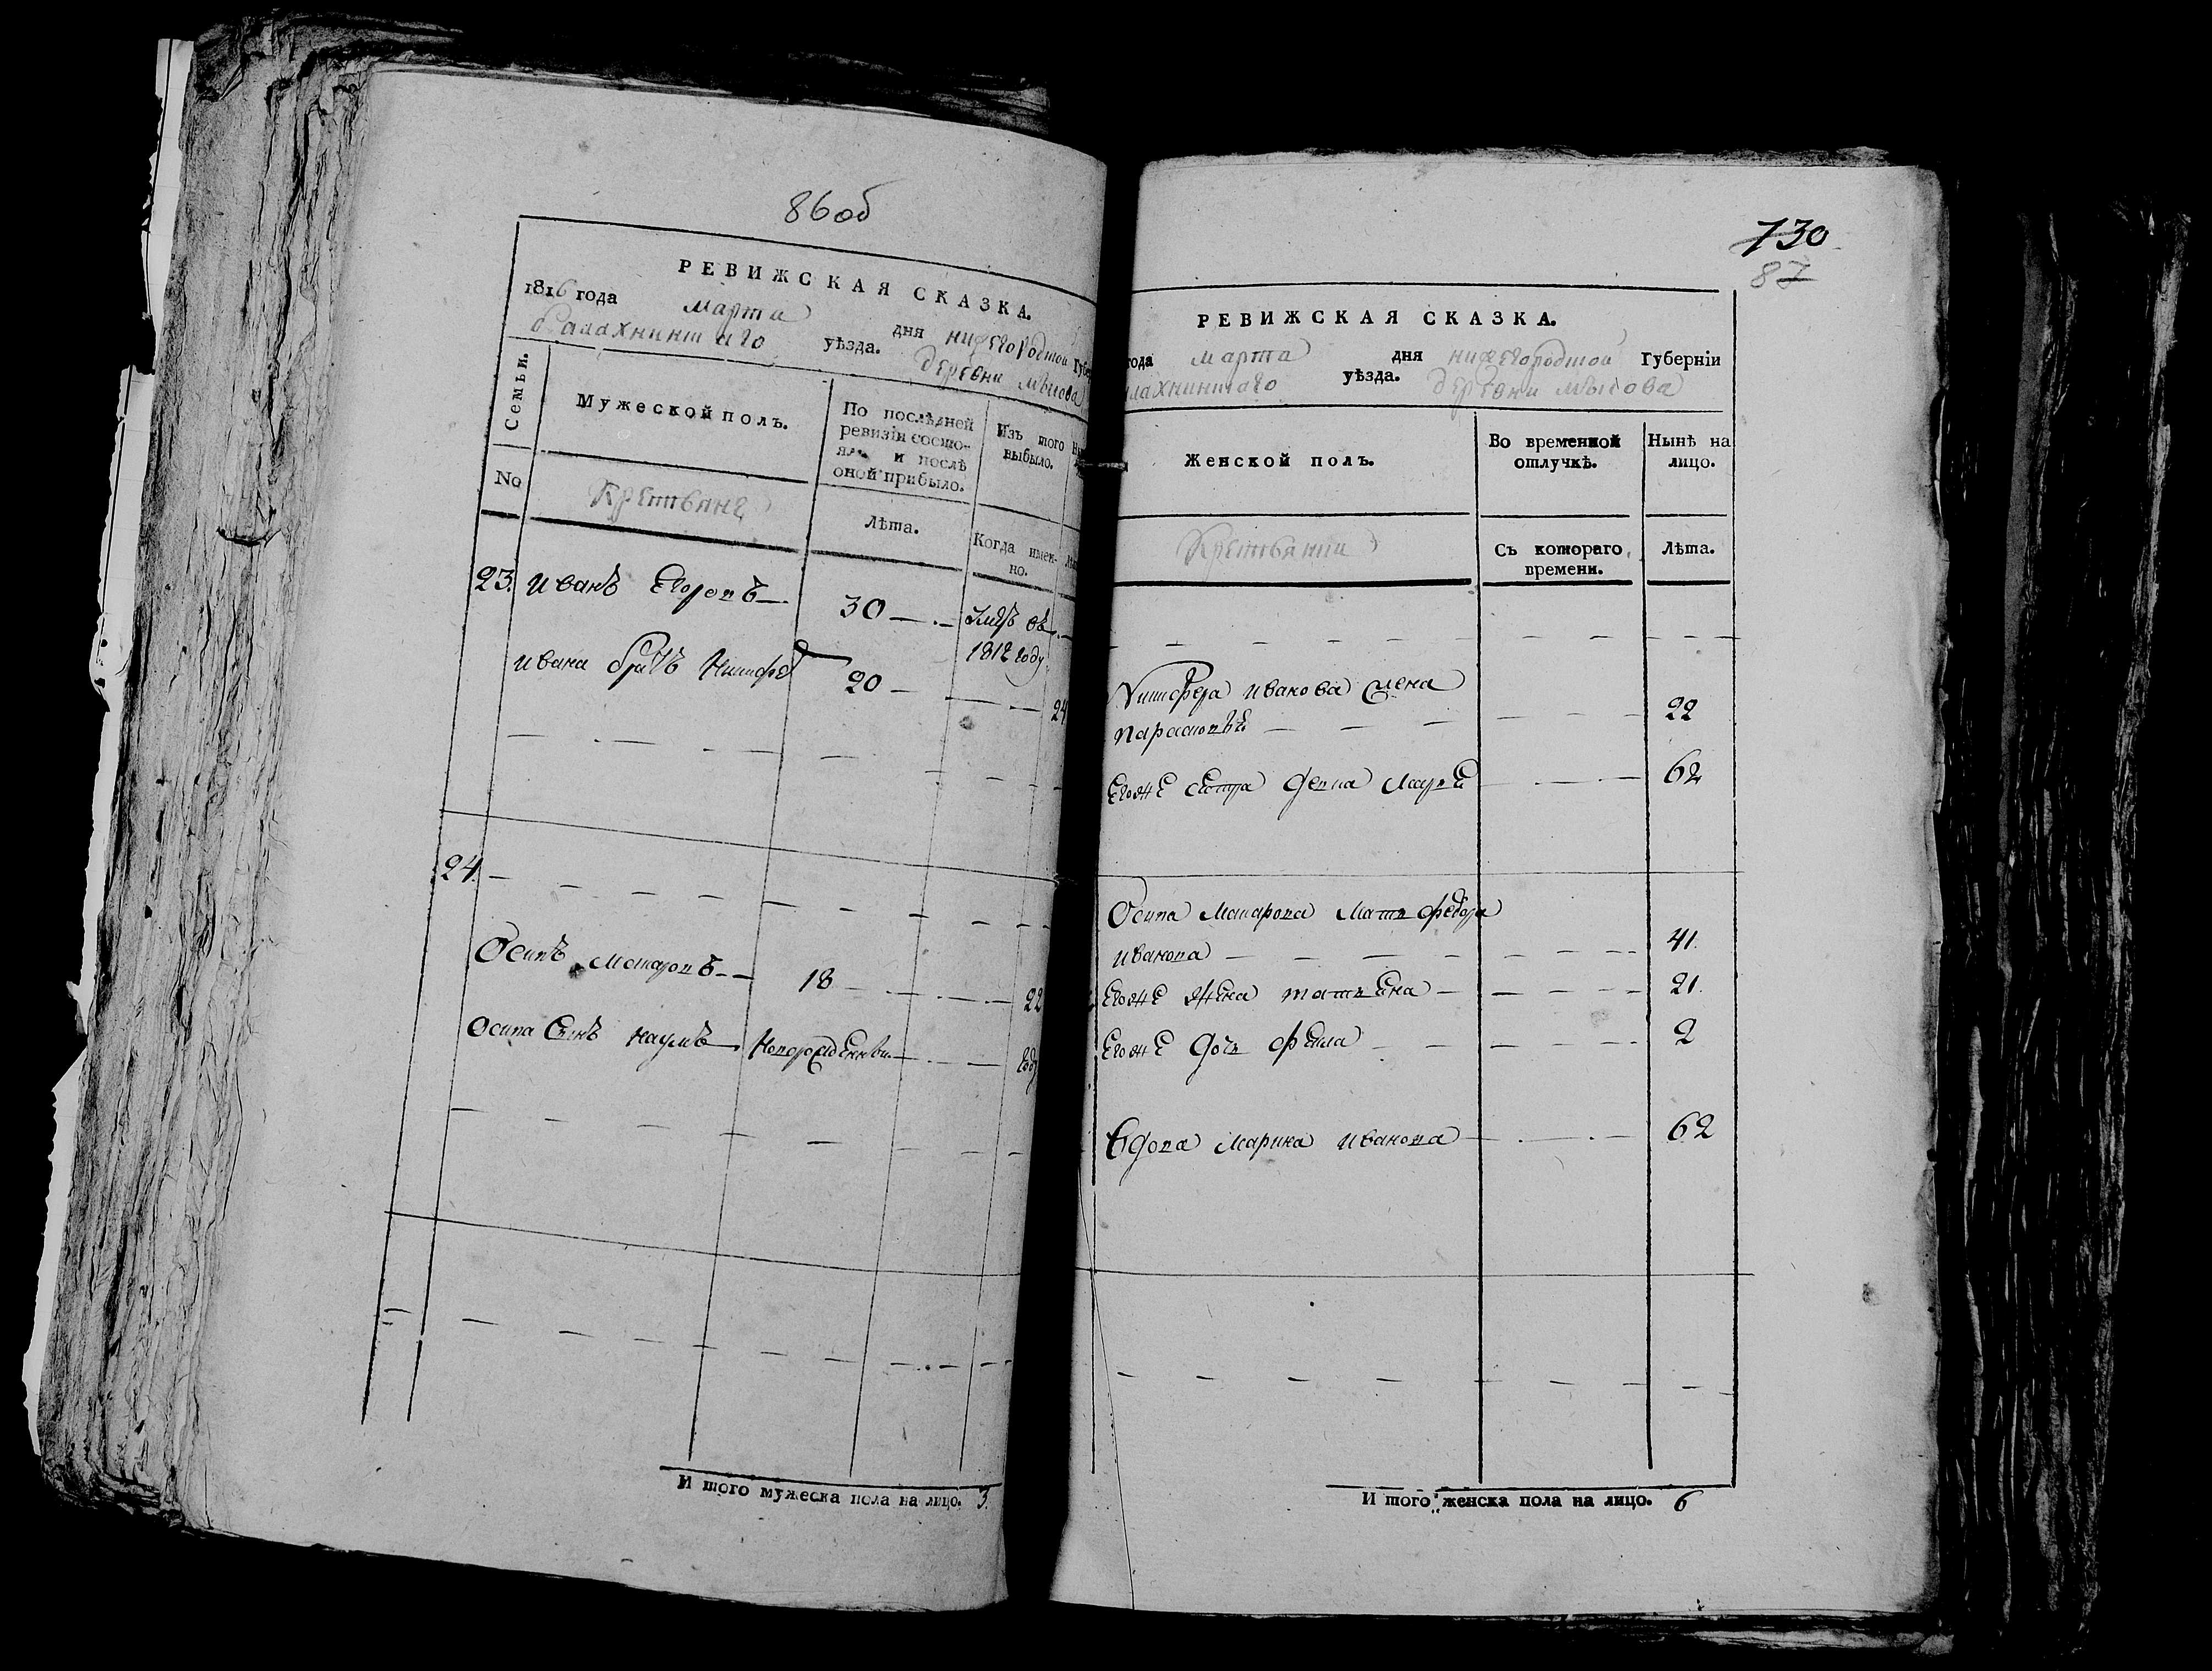 86 об
РЕВИЖСКАЯ СКАЗКА.
1816 года марта дня нижегородской Губе
балахнинскаго уѣзда. деревни мысова
Семьи.
Мужеской полъ.
По послѣдней ревизіи состояло и послѣ оной прибыло.
Изъ того выбыло.
No
Крестьяне
Лѣта.
Когда именно.
23. иванъ Егоровъ 30 умре въ 1812 году
ивана братъ Никифоръ 20 24
24.
Осипъ Макаровъ 18 22
осипа Сынъ наумъ новорожденны году
И того мужеска пола на лицо. 3.
730
87
РЕВИЖСКАЯ СКАЗКА.
года марта дня нижегородской Губерніи
лахнинскаго уѣзда. деревни мысова
Женской полъ.
Во временной отлучкѣ.
Нынѣ на лицо.
Крестьянки
Съ котораго времени.
Лѣта.
Никифора иванова жена
22
Егоже сестра девка 62
Осипа Макарова Мать федора
иванова 41.
Егоже жена татьяна 21.
Егоже дочь фекла 2
вдова марина иванова 62
И того женска пола на лицо. 6